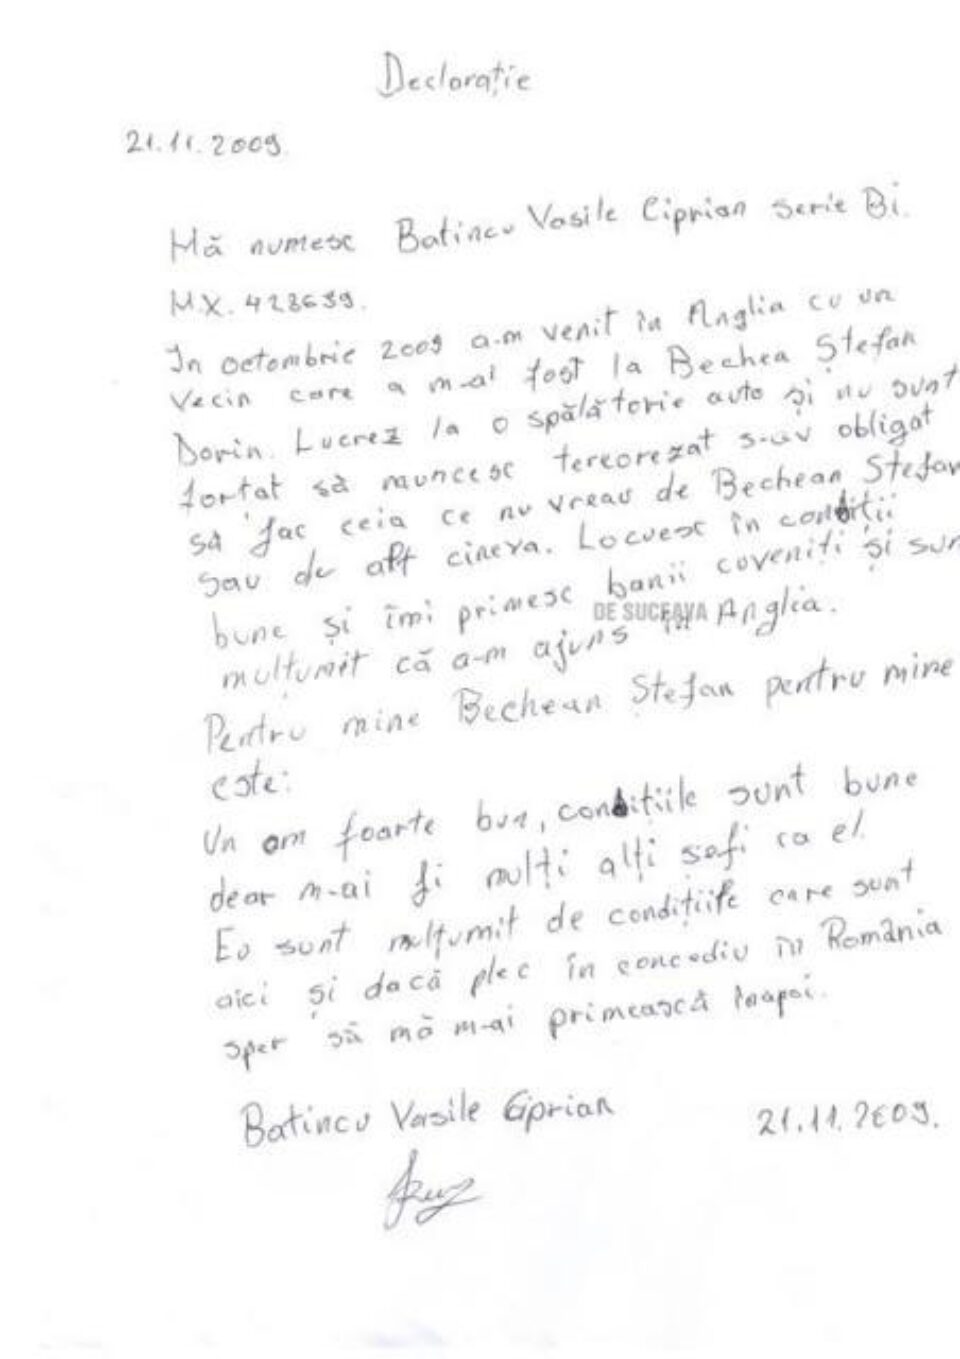 Declorație
21.11.2009.
Mă numesc Batincu Vasile Ciprian serie Bi.
M.X. 428639.
In octombrie 2009 a-m venit în Anglia cu un
Vecin care a m-ai fost la Bechea Ștefan
Dorin. Lucrez la o spălătorie auto și nu sunt
fortat să muncesc tereorezat s-au obligat
să fac ceia ce nu vreau de Bechean Ștefan
sau de alt cineva. Locuesc în condiții
bune și îmi primesc banii coveniți și sun
DE SUCEAVA
mulțumit că a-m ajuns în Anglia.
Pentru mine Bechean Ștefan pentru mine
este:
Un om foarte bun, condițiile sunt bune
deor m-ai fi mulți alți șefi ca el.
Eu sunt mulțumit de condițiile care sunt
aici și dacă plec în concediu în România
sper să mă m-ai primească înapoi.
Batincu Vasile Ciprian 21.11.2009.